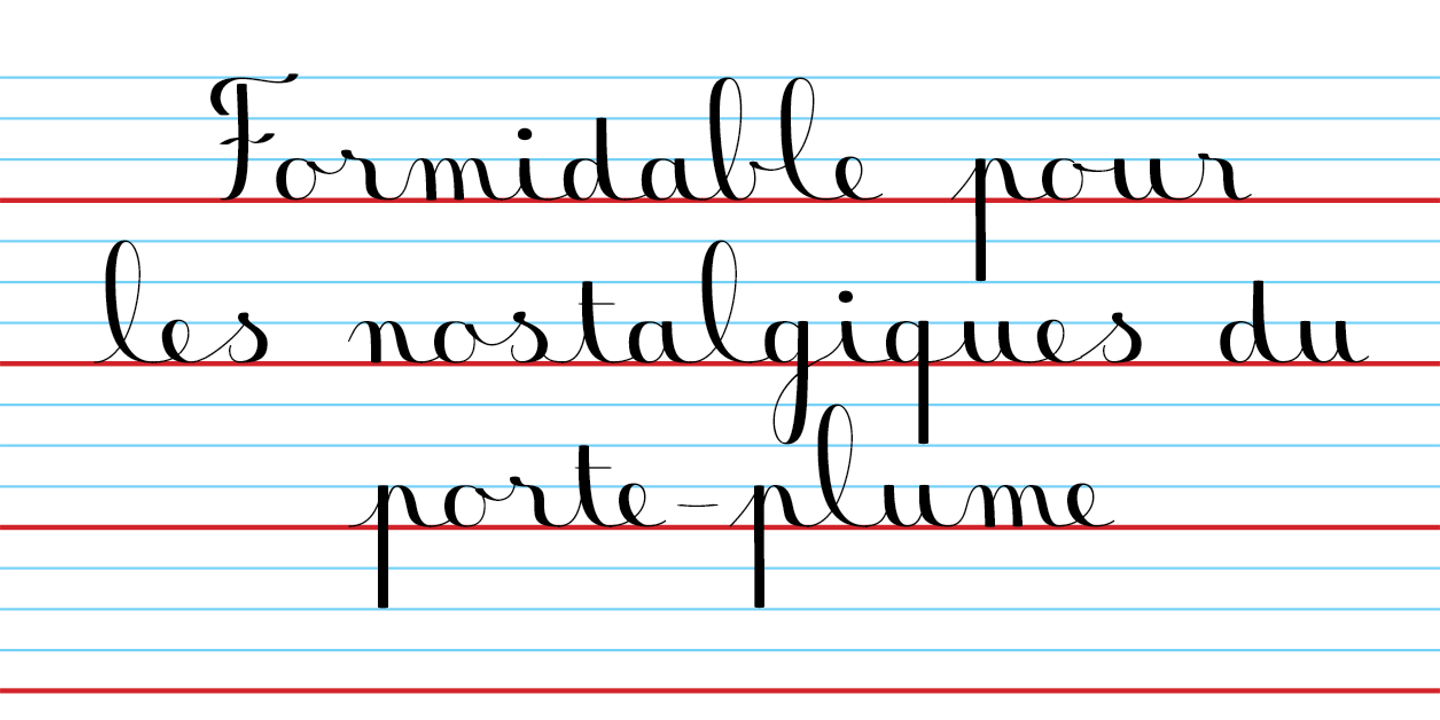 Formidable pour
les nostalgiques du
porte-plume